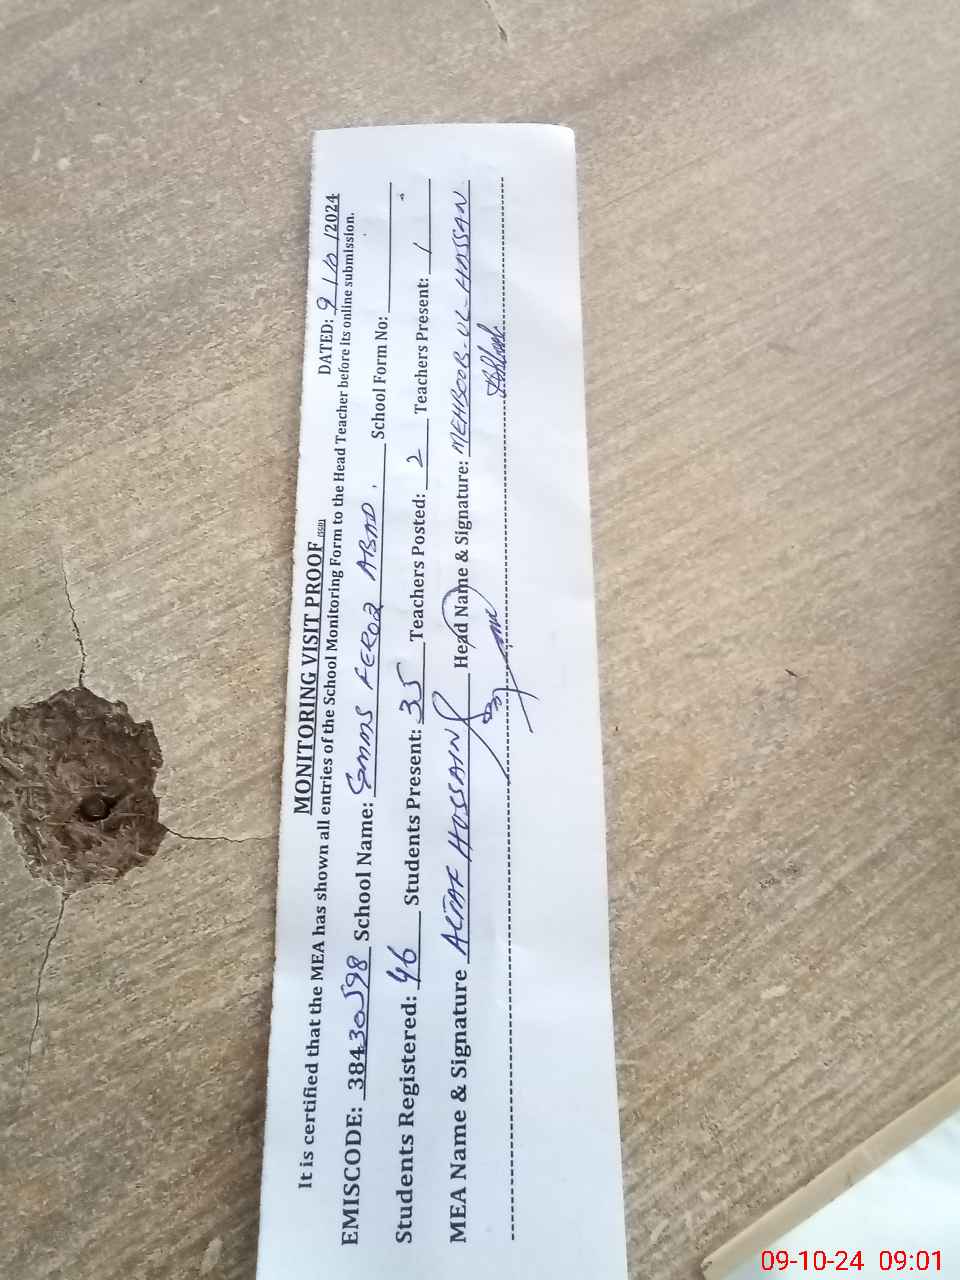 MONITORING VISIT PROOF (SSED) DATED: 9/10/2024
It is certified that the MEA has shown all entries of the School Monitoring Form to the Head Teacher before its online submission.
EMISCODE: 38430598 School Name: GMMS FEROZ ABAD. School Form No:
Students Registered: 46 Students Present: 35 Teachers Posted: 2 Teachers Present: 1
MEA Name & Signature ALTAF HUSSAIN Head Name & Signature: MEHBOOB-UL-HASSAN
09-10-24 09:01